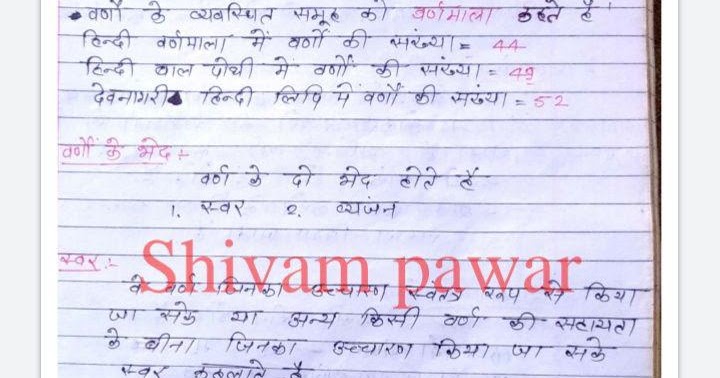 • वर्णों के व्यवस्थित समूह को वर्णमाला कहते है
हिन्दी वर्णमाला में वर्णों की संख्या = 44
हिन्दी बाल पोथी मे वर्णों की संख्या = 49
देवनागरी हिन्दी लिपि में वर्णों की संख्या = 52
वर्णों के भेद :-
वर्ण के दो भेद होते है
1. स्वर 2. व्यंजन
स्वर :-
Shivam pawar
वे वर्ण जिनका उच्चारण स्वतंत्र रूप से किया
जा सके या अन्य किसी वर्ण की सहायता
के बीना जिनका उच्चारण किया जा सके
स्वर कहलाते है